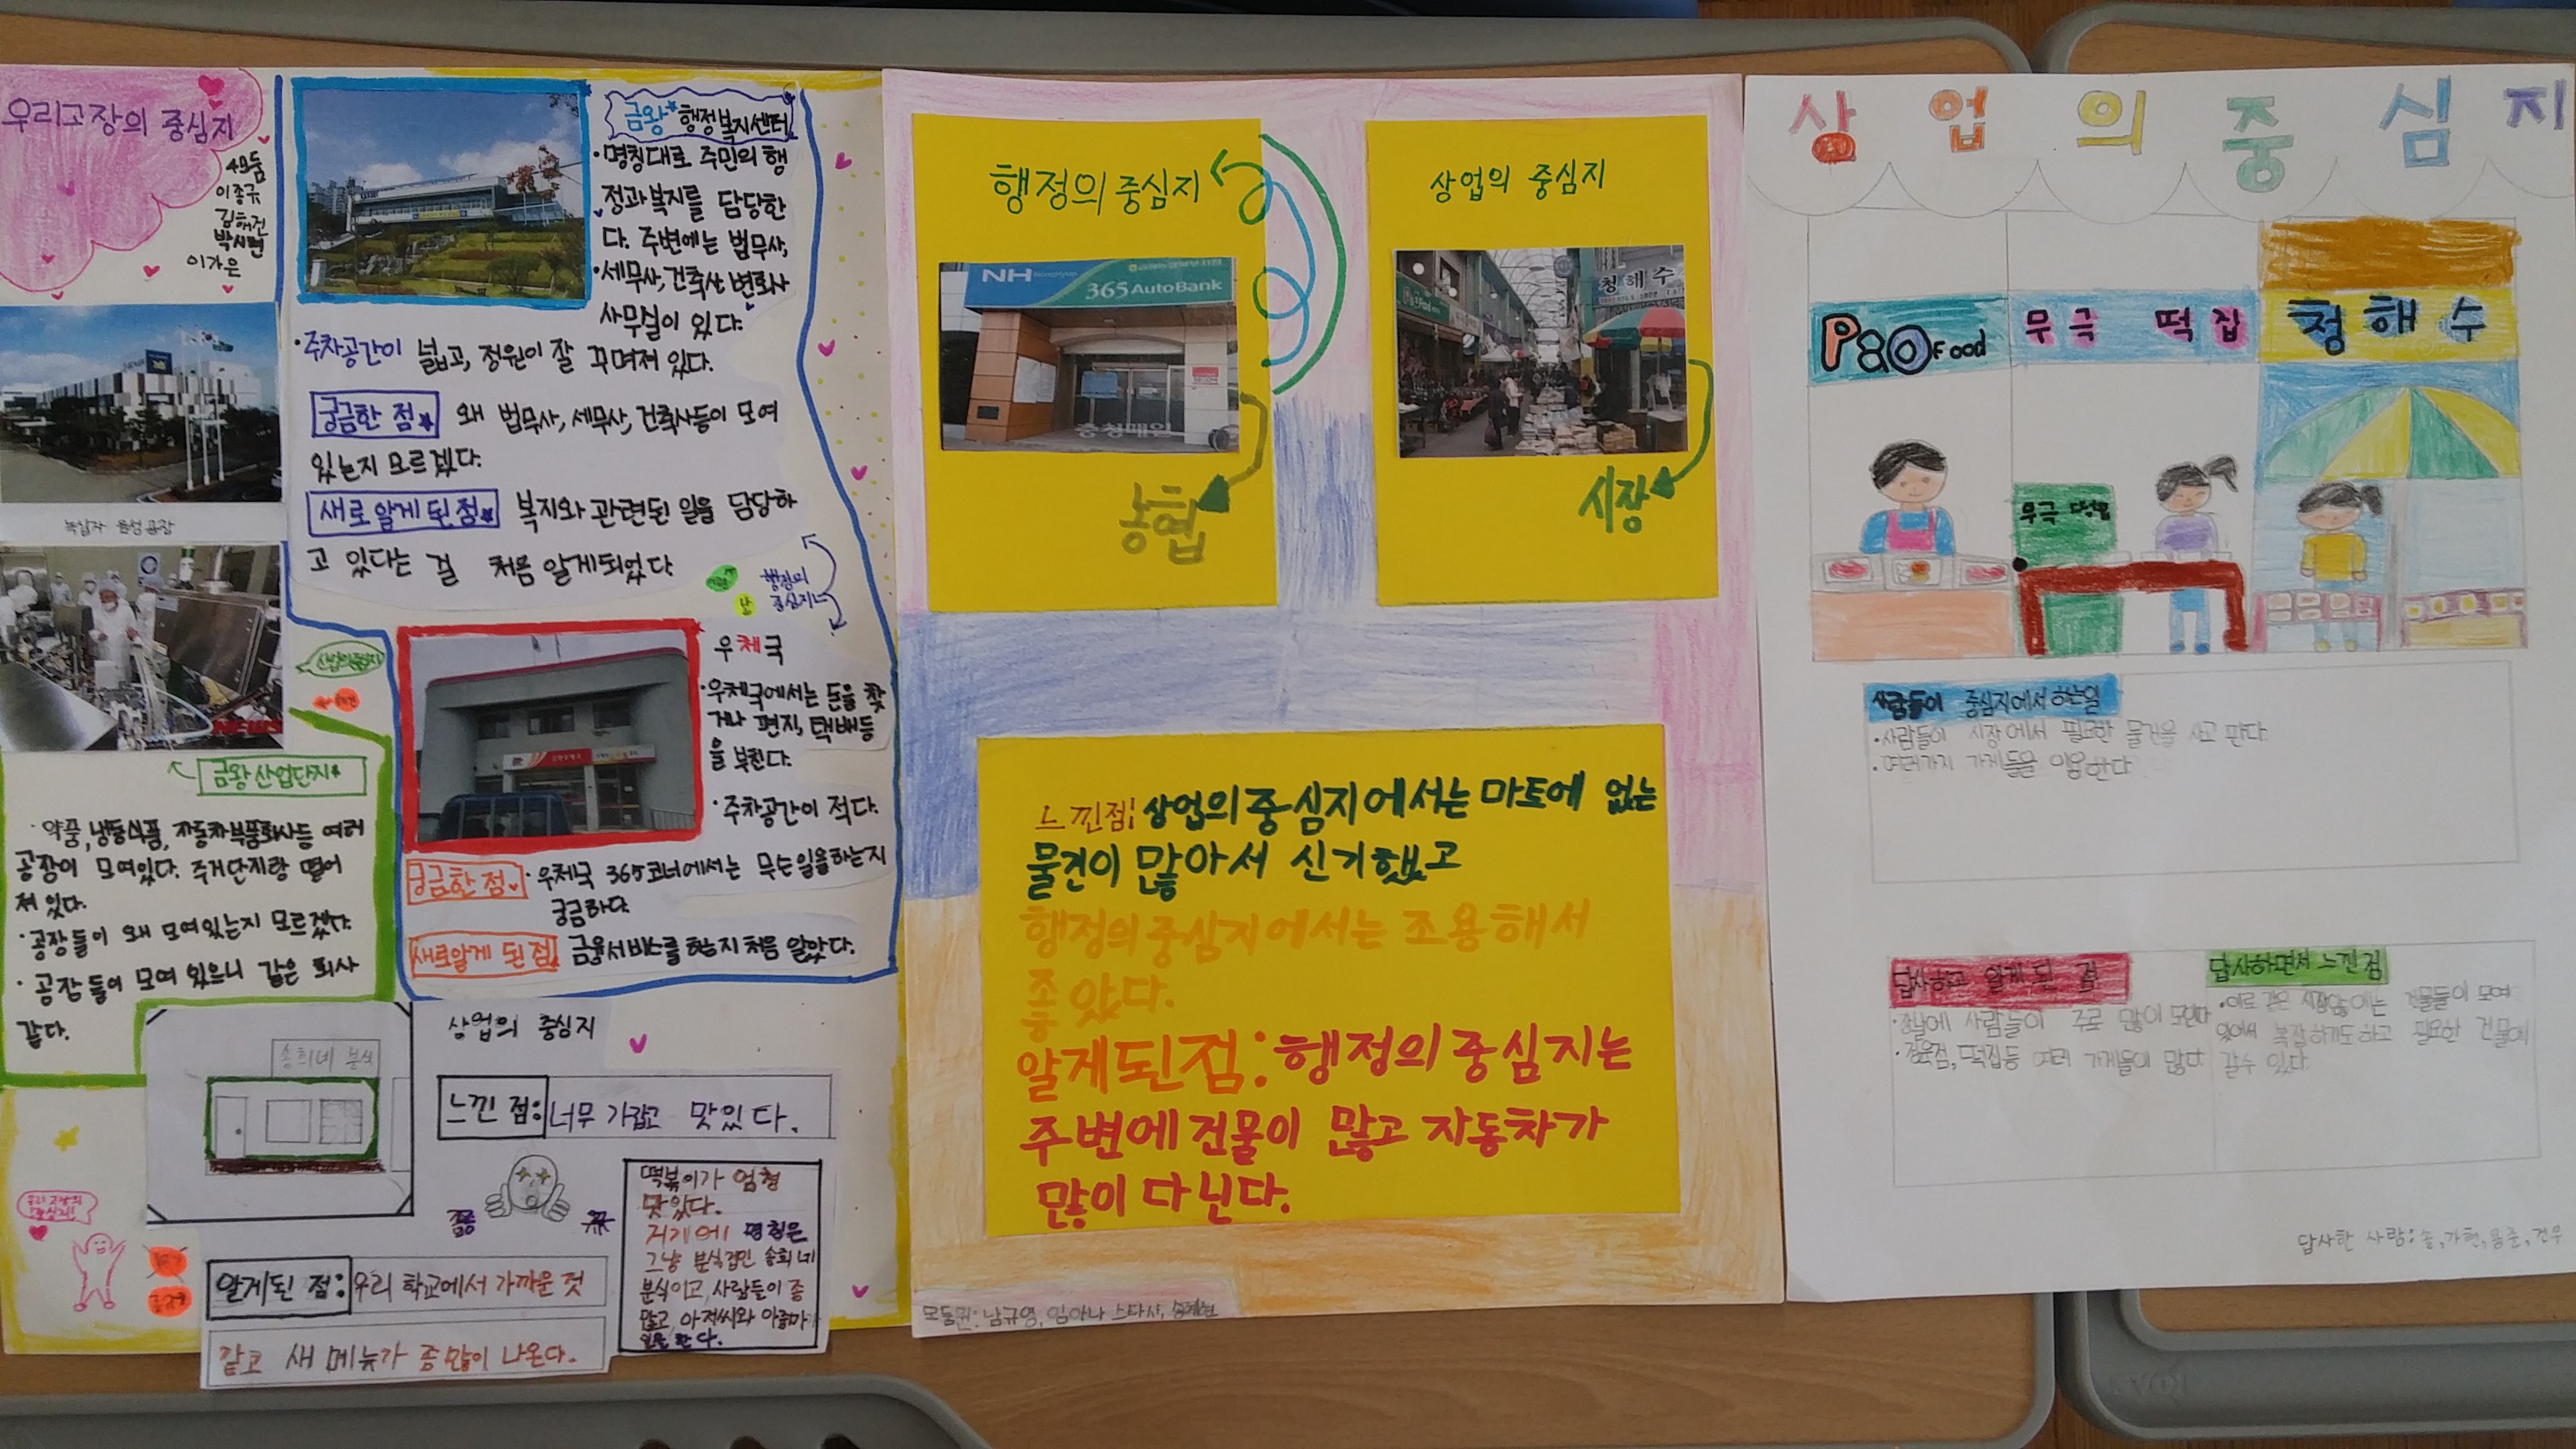 우리고장의 중심지
4모둠
이종규
김해건
박시현
이가은
녹십자 음성공장
NEWS
산업의 중심지
금왕 산업단지
· 약품, 냉동식품, 자동차부품회사등 여러
공장이 모여있다. 주거단지랑 떨어
져 있다.
· 공장들이 왜 모여있는지 모르겠다.
· 공장들이 모여 있으니 같은 회사
같다.
금왕 행정복지센터
· 명칭대로 주민의 행
정과 복지를 담당한
다. 주변에는 법무사,
· 세무사, 건축사, 변호사
사무실이 있다.
· 주차공간이 넓고, 정원이 잘 꾸며져 있다.
궁금한 점 왜 법무사, 세무사, 건축사등이 모여
있는지 모르겠다.
새로 알게 된 점 복지와 관련된 일을 담당하
고 있다는 걸 처음 알게되었다
행정의
중심지
우체국
· 우체국에서는 돈을 찾
거나 편지, 택배등
을 부친다.
· 주차공간이 적다.
궁금한 점 · 우체국 365코너에서는 무슨일을하는지
궁금하다
새로알게 된 점 금융서비스를 하는지 처음 알았다.
상업의 중심지
송희네 분식
느낀 점: 너무 가깝고 맛있다.
떡볶이가 엄청
맛있다.
저기에 명칭은
그냥 분식집인 송희네
분식이고, 사람들이 좀
많고, 아저씨와 아줌마가
일을 한다.
우리 고장의
중심지!
알게된 점: 우리 학교에서 가까운 것
같고 새 메뉴가 좀 많이 나온다.
행정의 중심지
NH NongHyup
365 AutoBank
농협
상업의 중심지
청해수
시장
느낀점! 상업의 중심지에서는 마트에 없는
물건이 많아서 신기했고
행정의 중심지에서는 조용해서
좋았다.
알게된점: 행정의 중심지는
주변에 건물이 많고 자동차가
많이 다닌다.
모둠원: 남규영, 임아나스타샤,
상업의 중심지
P&O Food
무극 떡집
청해수
무극 떡집
사람들이 중심지에서 하는일
· 사람들이 시장에서 필요한 물건을 사고 판다.
· 여러가지 가게들을 이용한다
답사하고 알게 된 것
· 장날에 사람들이 주로 많이 모인다
· 정육점, 떡집등 여러 가게들이 많다
답사하면서 느낀 점
건물들이 모여
있어서 복잡하기도 하고 필요한 건물에
갈수 있다.
답사한 사람: 솔, 가현, 용준, 건우